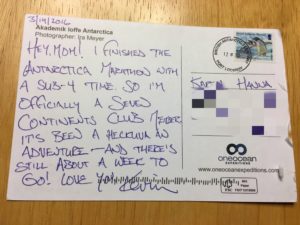 3/19/2016
Akademik Ioffe Antarctica
Photographer: Ira Meyer
HEY, MOM! I FINISHED THE
ANTARCTICA MARATHON WITH
A SUB-4 TIME. SO I'M
OFFICIALLY A SEVEN
CONTINENTS CLUB
IT'S BEEN A HECKUVA
ADVENTURE—AND THERE'S
STILL ABOUT A WEEK TO
GO! LOVE YOU, KEVIN
HANNA
oneocean
EXPEDITIONS
www.oneoceanexpeditions.com